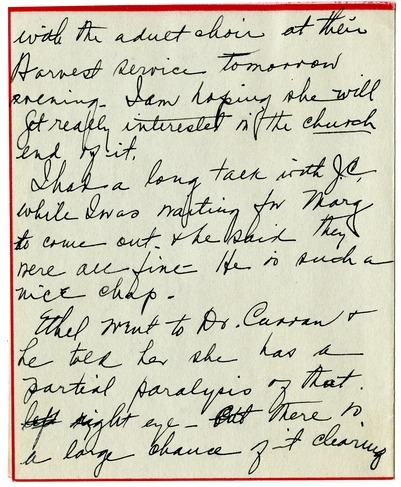 with the adult choir at their
Harvest service tomorrow
evening. I am hoping she will
get really interested in the church
end of it.
I had a long talk with J.C.
while I was waiting for Marg
to come out. & he said they
were all fine - He is such a
nice chap.
Ethel went to Dr. Curran &
he told her she has a
partial paralysis of that
left right eye - but there is
a large chance of it clearing